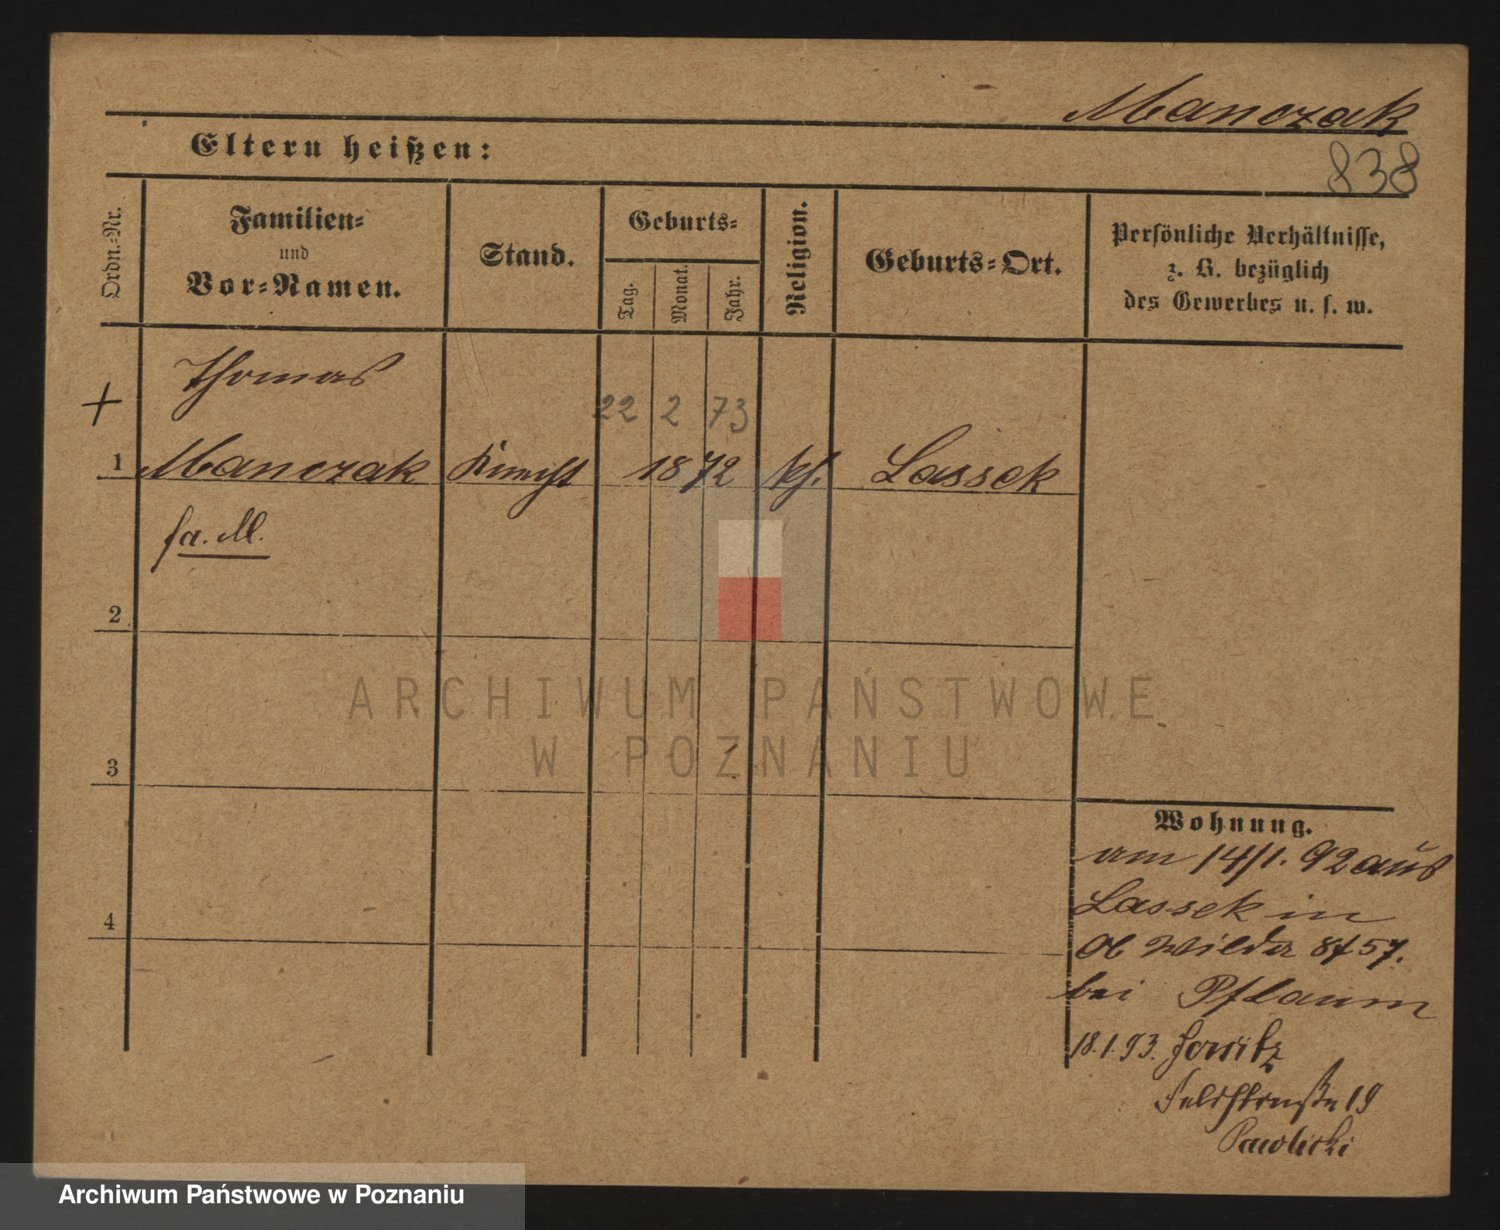 Manczak
838
Eltern heißen:
Ordn.-Nr.
Familien-
und
Vor-Namen.
Stand.
Geburts-
Tag.
Monat.
Jahr.
Religion.
Geburts-Ort.
Persönliche Verhältnisse,
z. B. bezüglich
des Gewerbes u. s. w.
+
Thomas
22 2 73
1 Manczak Knecht 1872 kt. Lassek
fa. M.
2
3
4
ARCHIWUM PAŃSTWOWE
W POZNANIU
Wohnung.
am 14/1. 92 aus
Lassek in
Ob Wilda 57.
bei Pflaum
18.1.93.
Feldstraße 19
Pawlicki
Archiwum Państwowe w Poznaniu